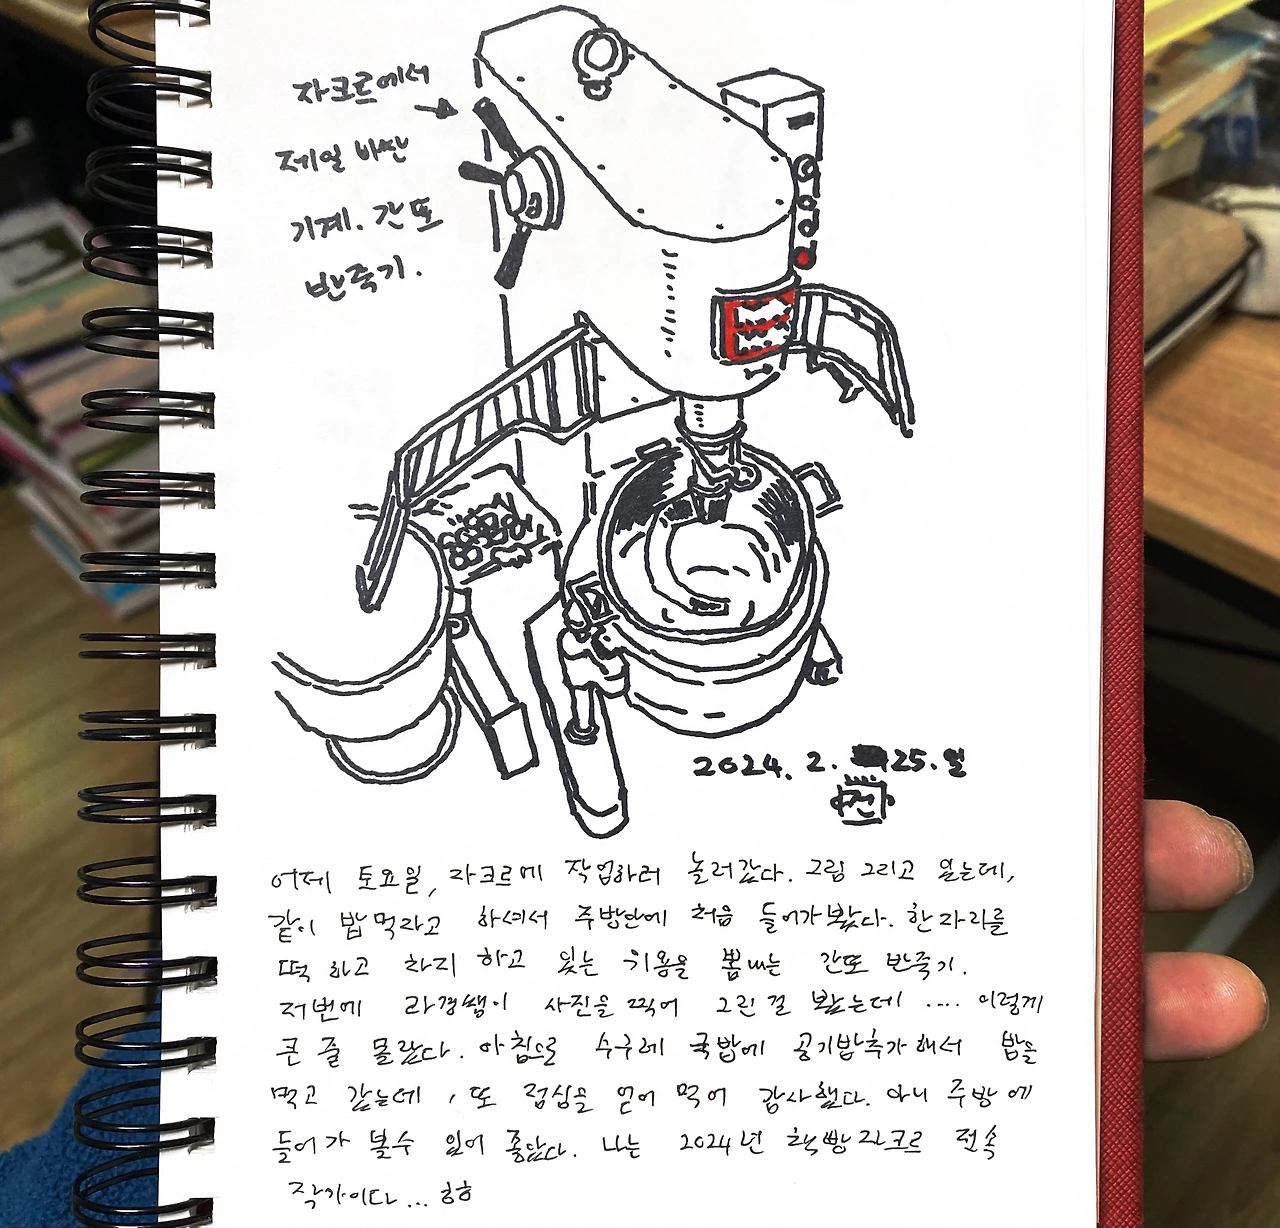 자크르에서
제일 비싼
기계. 간또
반죽기.
2024. 2. 25. 일
전
어제 토요일, 자크르에 작업하러 놀러갔다. 그림 그리고 있는데,
같이 밥먹자고 하셔서 주방안에 처음 들어가봤다. 한자리를
떡 하고 차지 하고 있는 위용을 뿜내는 간또 반죽기.
저번에 라경쌤이 사진을 찍어 그린걸 봤는데 .... 이렇게
큰 줄 몰랐다. 아침으로 수구레 국밥에 공기밥추가해서 밥을
먹고 갔는데, 또 점심을 얻어 먹어 감사했다. 아니 주방에
들어가 볼수 있어 좋았다. 나는 2024년 책빵자크르 전속
작가이다... ㅎㅎ